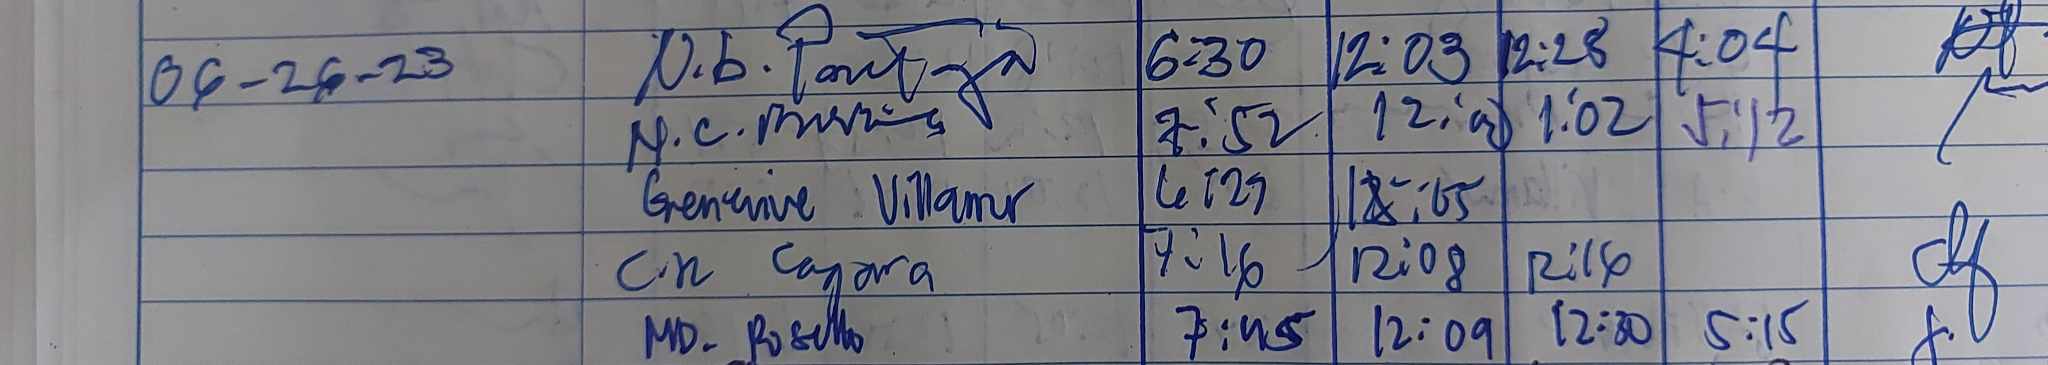 06-26-23 N.b. 6:30 12:03 12:28 4:04
N.C. 7:52 12: 1:02 5:12
Genevive Villamor 6:29 12:05
C.N Cagara 7:16 12:08 12:16
MD. Rosello 7:45 12:09 12:30 5:15